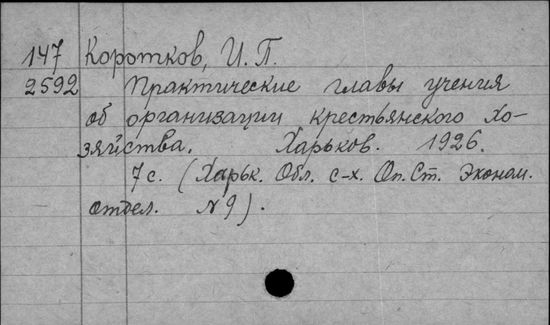 147 Коротков, И. П.
2592 Практические главы учения
об организации крестьянского хо-
зяйства. Харьков. 1926.
7 с. (Харьк. Обл. с-х. Оп. Ст. Эконом.
отдел. N 9).